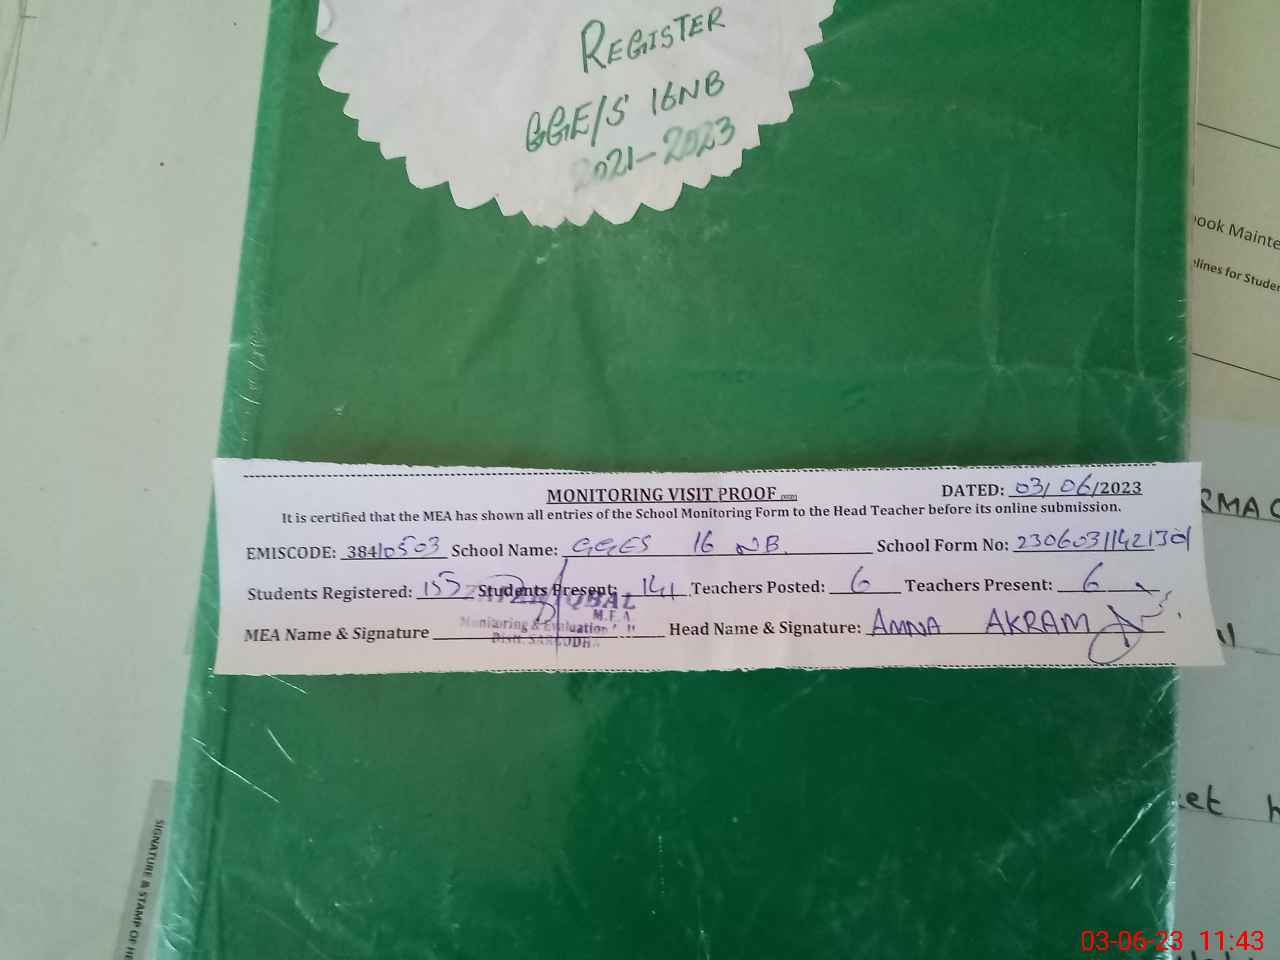 REGISTER
GGE/S 16NB
2021-2023
ook Mainte
lines for Studen
MONITORING VISIT PROOF
DATED: 03/06/2023
It is certified that the MEA has shown all entries of the School Monitoring Form to the Head Teacher before its online submission.
EMISCODE: 38410503 School Name: GGES 16 NB. School Form No:
Students Registered: Students Present: 141 Teachers Posted: 6 Teachers Present: 6
IQBAL
M.E.A
Monitoring & Evaluation
Distt. SARGODHA
MEA Name & Signature Head Name & Signature: AMNA AKRAM
RMAC
et
SIGNATURE & STAMP OF HE
03-06-23 11:43